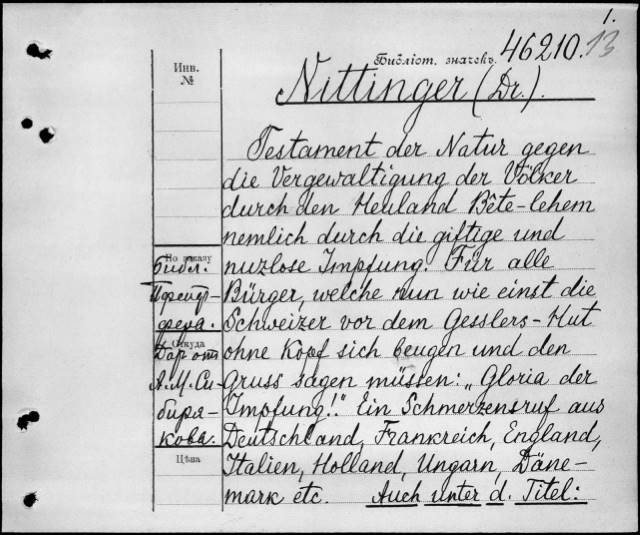 1.
Библіот. значекъ 46210. 13
Инв.
№
Nittinger (Dr.).
Testament der Natur gegen
die Vergewaltigung der Völker
durch den Heuland Bête-lehem
nemlich durch die giftige und
nuzlose Impfung. Für alle
Bürger, welche nun wie einst die
Schweizer vor dem Gesslers-Hut
ohne Kopf sich beugen und den
Gruss sagen müssen: „Gloria der
Impfung!" Ein Schmerzensruf aus
Deutschland, Frankreich, England,
Italien, Holland, Ungarn, Däne-
mark etc. Auch unter d. Titel:
По заказу
Библ.
Откуда
Дар от
А. М. Си-
биря-
кова.
Цѣна